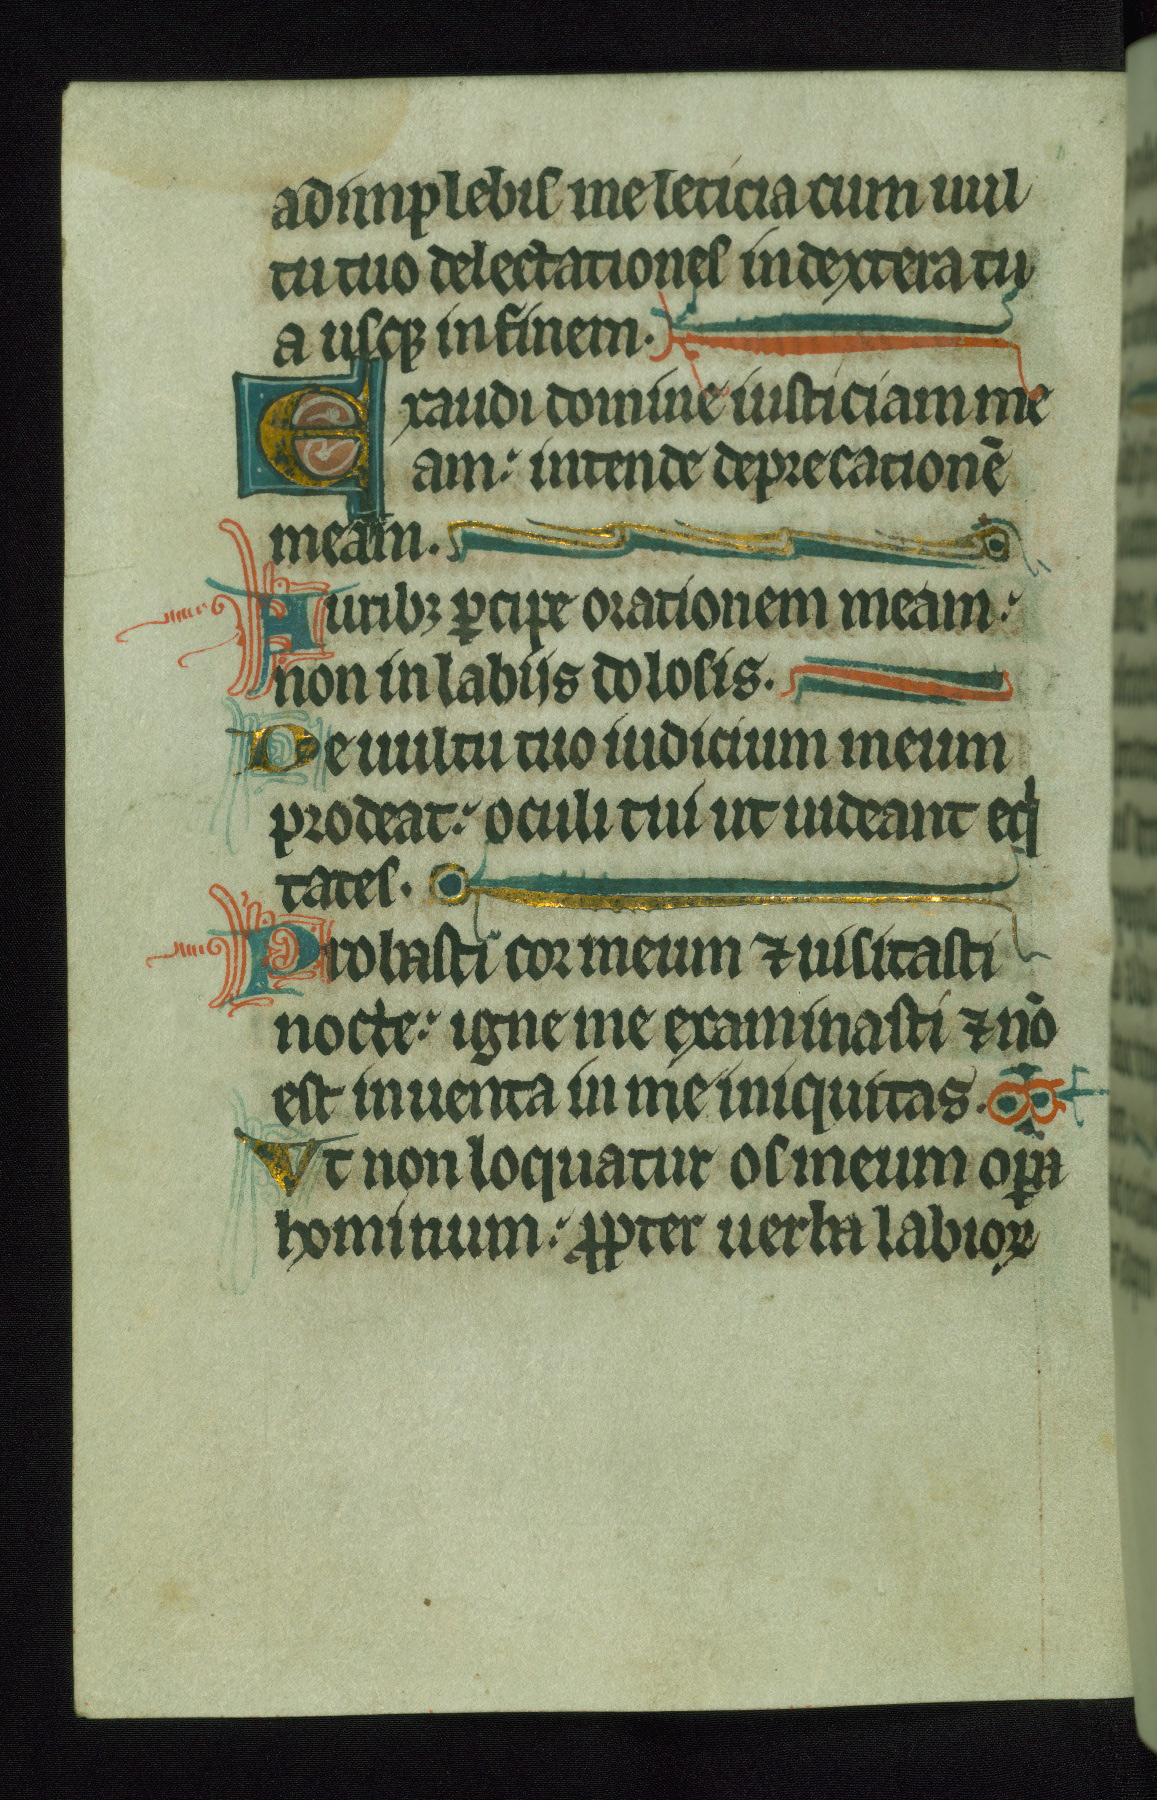 adimplebis me leticia cum uul
tu tuo delectationes in dextera tu
a usq; in finem.
Exaudi domine iusticiam me
am: intende deprecationē
meam.
Aurib; ꝑcipe orationem meam:
non in labiis dolosis.
De uultu tuo iudicium meum
prodeat: oculi tui ut uideant eq
tates.
Probasti cor meum ⁊ uisitasti
nocte: igne me examinasti ⁊ nō
est inuenta in me iniquitas.
Vt non loquatur os meum oꝑa
hominum: ꝓpter uerba labioꝝ